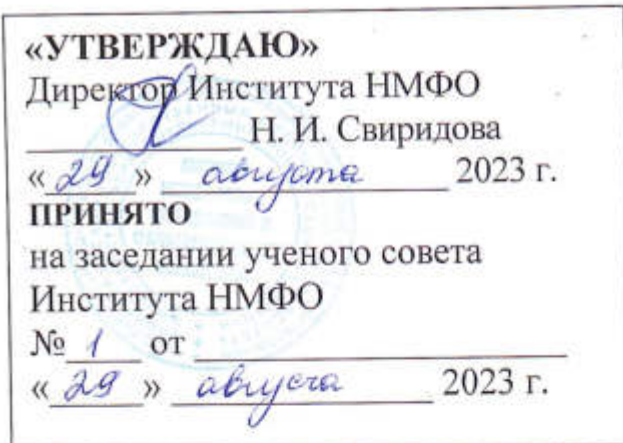 «УТВЕРЖДАЮ»
Директор Института НМФО
Н. И. Свиридова
«29» августа 2023 г.
ПРИНЯТО
на заседании ученого совета
Института НМФО
№ 1 от
«29» августа 2023 г.